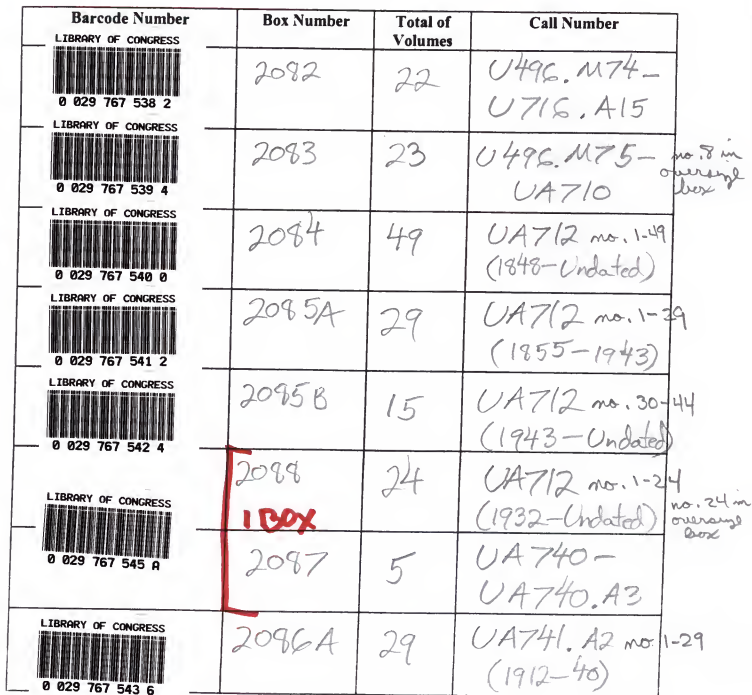 Barcode Number Box Number Total of Volumes Call Number
LIBRARY OF CONGRESS
0 029 767 538 2
2082
22
U496.M74-
U716.A15
LIBRARY OF CONGRESS
0 029 767 539 4
2083
23
U496.M75-
UA710
no. 8 in
oversize
box
LIBRARY OF CONGRESS
0 029 767 540 0
2084
49
UA712 no. 1-49
(1848-Undated)
LIBRARY OF CONGRESS
0 029 767 541 2
2085A
29
UA712 no. 1-39
(1855-1943)
LIBRARY OF CONGRESS
0 029 767 542 4
2085B
15
UA712 no. 30-44
(1943-Undated)
LIBRARY OF CONGRESS
0 029 767 545 A
2088
1 BOX
24
UA712 no. 1-24
(1932-Undated)
no. 24 in
oversize
box
2087
5
UA740-
UA740.A3
LIBRARY OF CONGRESS
0 029 767 543 6
2086A
29
UA741.A2 no. 1-29
(1912-40)